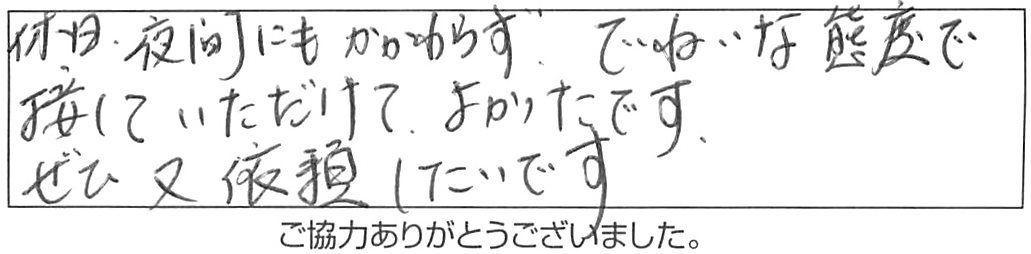 休日、夜間にもかかわらず、ていねいな態度で
接していただけて、よかったです。
ぜひ又依頼したいです
ご協力ありがとうございました。